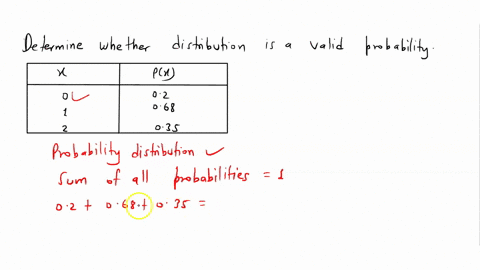 Determine whether distribution is a valid probability.
x P(x)
0 ✓ 0.2
1 0.68
2 0.35
Probability distribution ✓
Sum of all probabilities = 1
0.2 + 0.68 + 0.35 =